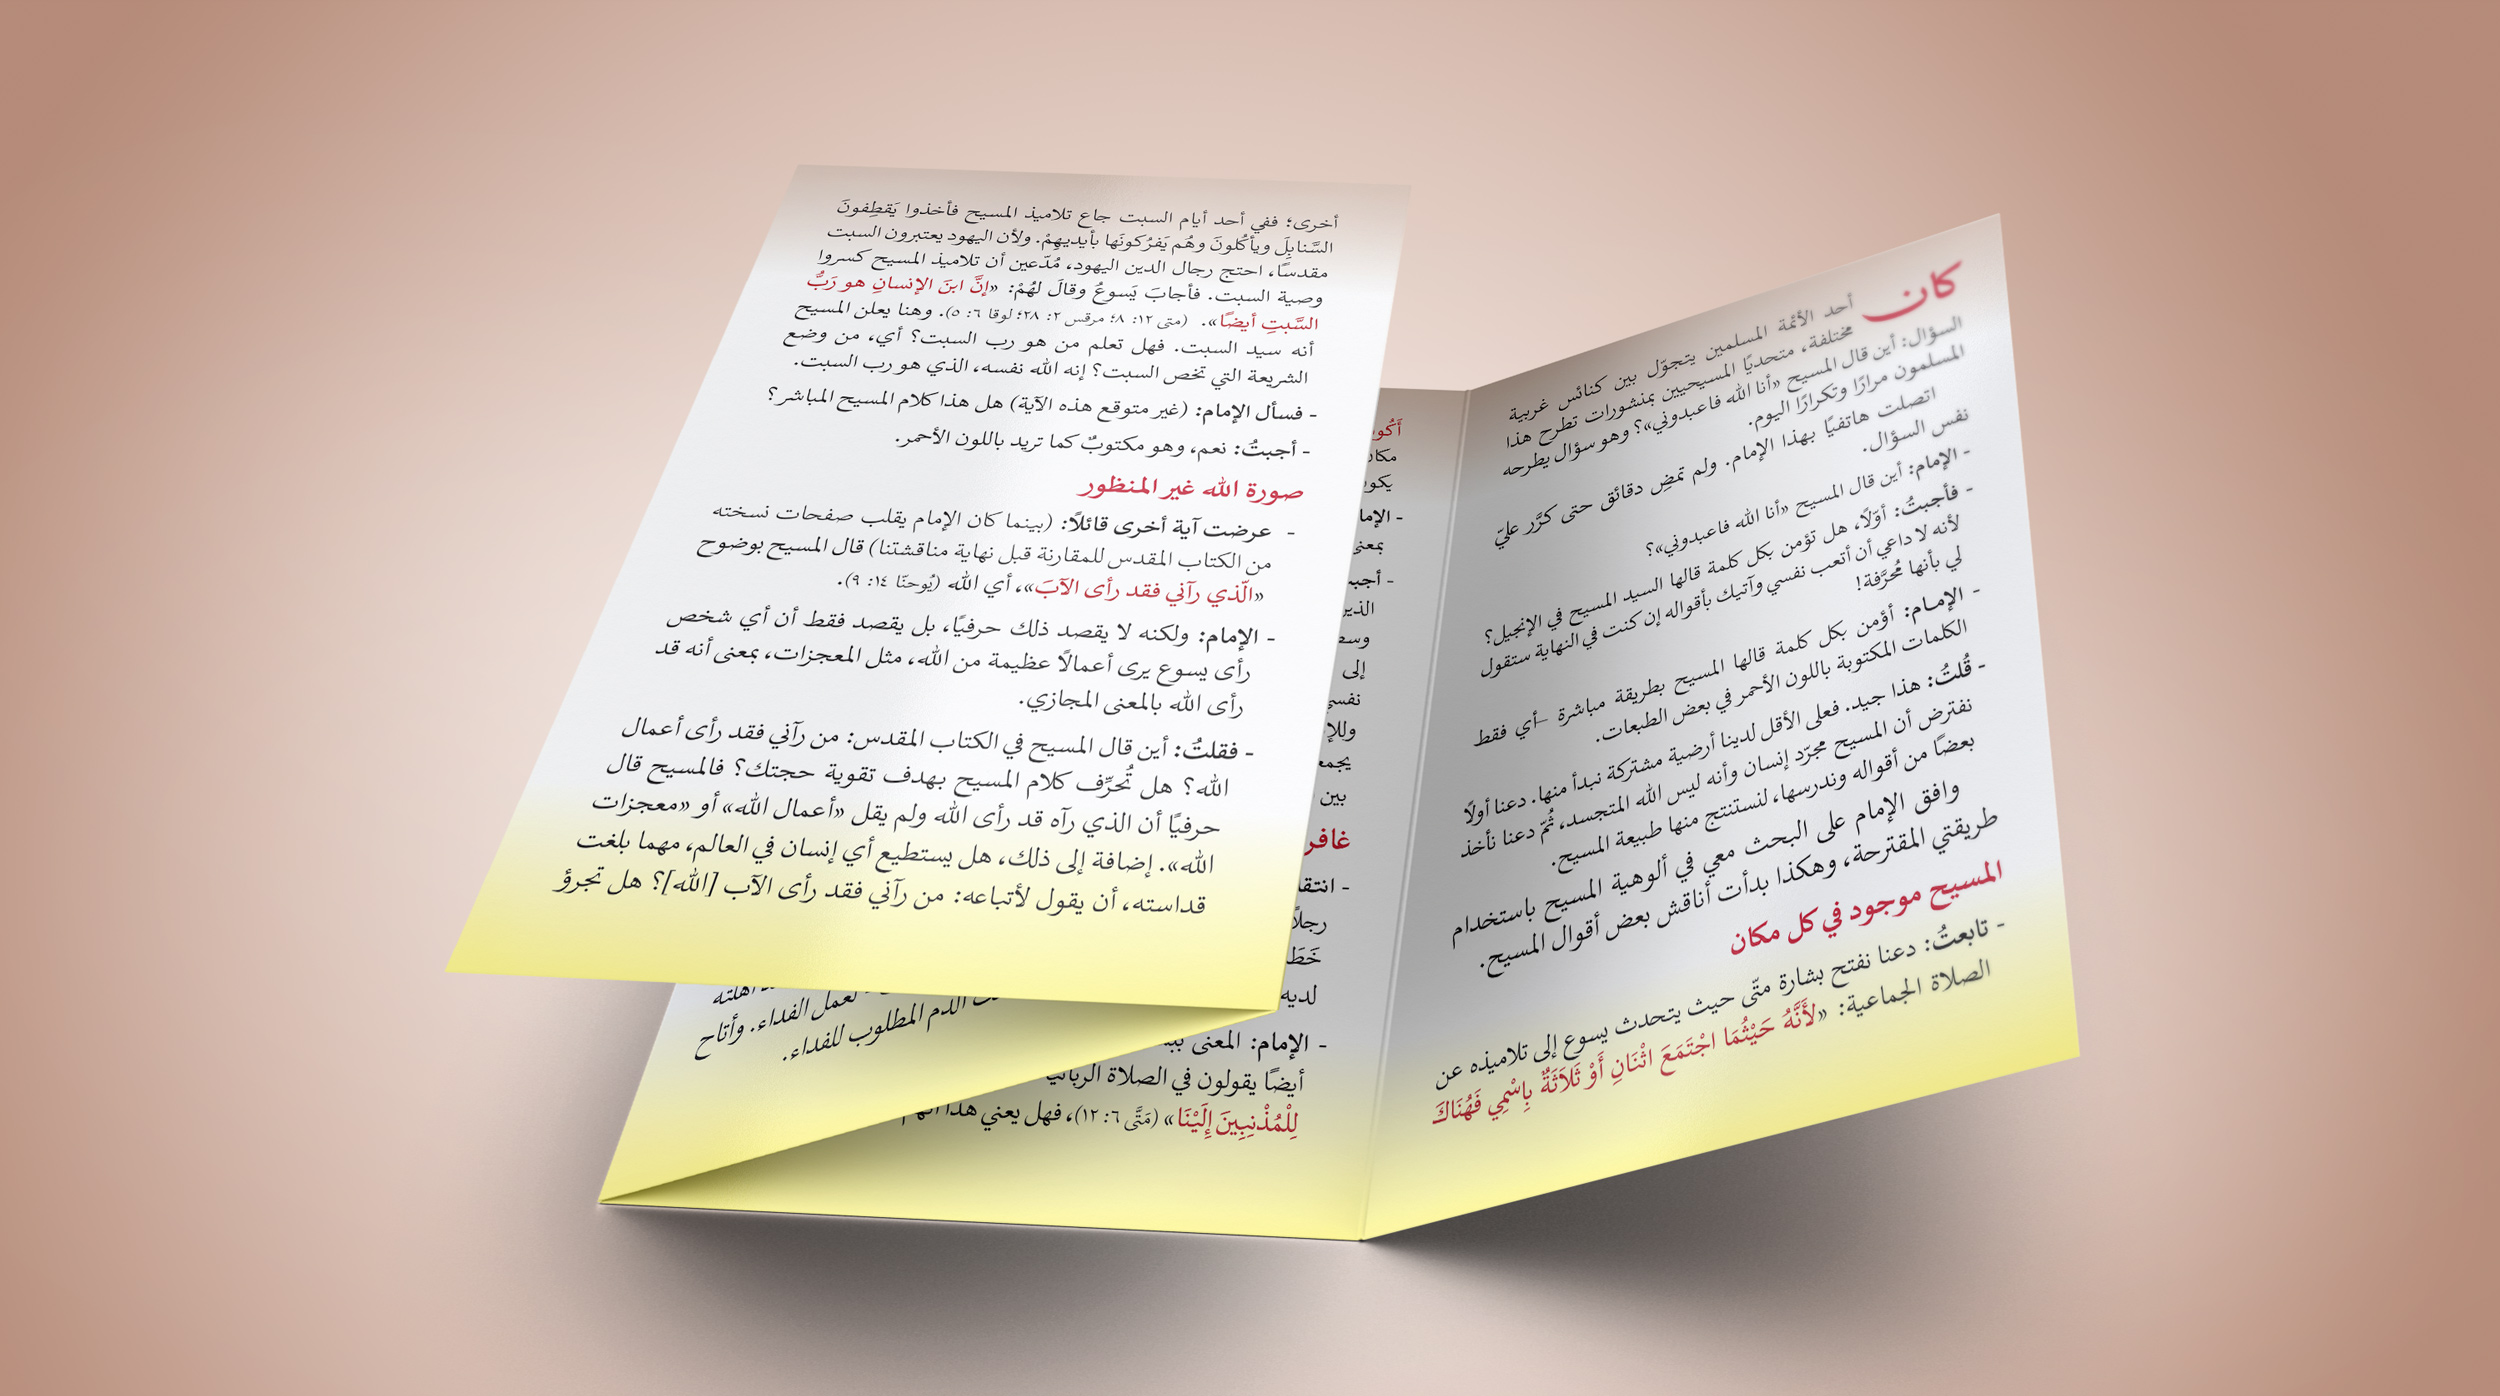 كان
أحد الأئمة المسلمين يتجوّل بين كنائس غربية
مختلفة، متحديًا المسيحيين بمنشورات تطرح هذا
السؤال: أين قال المسيح «أنا الله فاعبدوني»؟ وهو سؤال يطرحه
المسلمون مرارًا وتكرارًا اليوم.
اتصلت هاتفيًا بهذا الإمام. ولم تمضِ دقائق حتى كرَّر عليّ
نفس السؤال.
- الإمام: أين قال المسيح «أنا الله فاعبدوني»؟
- فأجبتُ: أوّلًا، هل تؤمن بكل كلمة قالها السيد المسيح في الإنجيل؟
لأنه لا داعي أن أتعب نفسي وآتيك بأقواله إن كنت في النهاية ستقول
لي بأنها مُحرَّفة!
- الإمـام: أؤمن بكل كلمة قالها المسيح بطريقة مباشرة –أي فقط
الكلمات المكتوبة باللون الأحمر في بعض الطبعات.
- قُلتُ: هذا جيد. فعلى الأقل لدينا أرضية مشتركة نبدأ منها. دعنا أولًا
نفترض أن المسيح مجرّد إنسان وأنه ليس الله المتجسد، ثُمّ دعنا نأخذ
بعضًا من أقواله وندرسها، لنستنتج منها طبيعة المسيح.
وافق الإمام على البحث معي في ألوهية المسيح باستخدام
طريقتي المقترحة، وهكذا بدأت أناقش بعض أقوال المسيح.
المسيح موجود في كل مكان
- تابعتُ: دعنا نفتح بشارة متّى حيث يتحدث يسوع إلى تلاميذه عن
الصلاة الجماعية: «لأَنَّهُ حَيْثُمَا اجْتَمَعَ اثْنَانِ أَوْ ثَلاَثَةٌ بِاسْمِي فَهُنَاكَ
- الإمام: المعنى
أيضًا يقولون في الصلاة
لِلْمُذْنِبِينَ إِلَيْنَا» (مَتَّى ٦: ١٢)، فهل يعني هذا
لعمل الفداء. وأتاح
الدم المطلوب للفداء.
أخرى؛ ففي أحد أيام السبت جاع تلاميذ المسيح فأخذوا يَقطِفونَ
السَّنابِلَ ويأكُلونَ وهُم يَفرُكونَها بأيديهِمْ. ولأن اليهود يعتبرون السبت
مقدسًا، احتج رجال الدين اليهود، مُدّعين أن تلاميذ المسيح كسروا
وصية السبت. فأجابَ يَسوعُ وقالَ لهُمْ: «إنَّ ابنَ الإنسانِ هو رَبُّ
السَّبتِ أيضًا». (متى ١٢: ٨؛ مرقس ٢: ٢٨؛ لوقا ٦: ٥). وهنا يعلن المسيح
أنه سيد السبت. فهل تعلم من هو رب السبت؟ أي، من وضع
الشريعة التي تخص السبت؟ إنه الله نفسه، الذي هو رب السبت.
- فسأل الإمام: (غير متوقع هذه الآية) هل هذا كلام المسيح المباشر؟
- أجبتُ: نعم، وهو مكتوبٌ كما تريد باللون الأحمر.
صورة الله غير المنظور
- عرضت آية أخرى قائلًا: (بينما كان الإمام يقلب صفحات نسخته
من الكتاب المقدس للمقارنة قبل نهاية مناقشتنا) قال المسيح بوضوح
«الّذي رآني فقد رأى الآبَ»، أي الله (يُوحنّا ١٤: ٩).
- الإمام: ولكنه لا يقصد ذلك حرفيًا، بل يقصد فقط أن أي شخص
رأى يسوع يرى أعمالًا عظيمة من الله، مثل المعجزات، بمعنى أنه قد
رأى الله بالمعنى المجازي.
- فقلتُ: أين قال المسيح في الكتاب المقدس: من رآني فقد رأى أعمال
الله؟ هل تُحرِّف كلام المسيح بهدف تقوية حجتك؟ فالمسيح قال
حرفيًا أن الذي رآه قد رأى الله ولم يقل «أعمال الله» أو «معجزات
الله». إضافة إلى ذلك، هل يستطيع أي إنسان في العالم، مهما بلغت
قداسته، أن يقول لأتباعه: من رآني فقد رأى الآب [الله]؟ هل تجرؤ